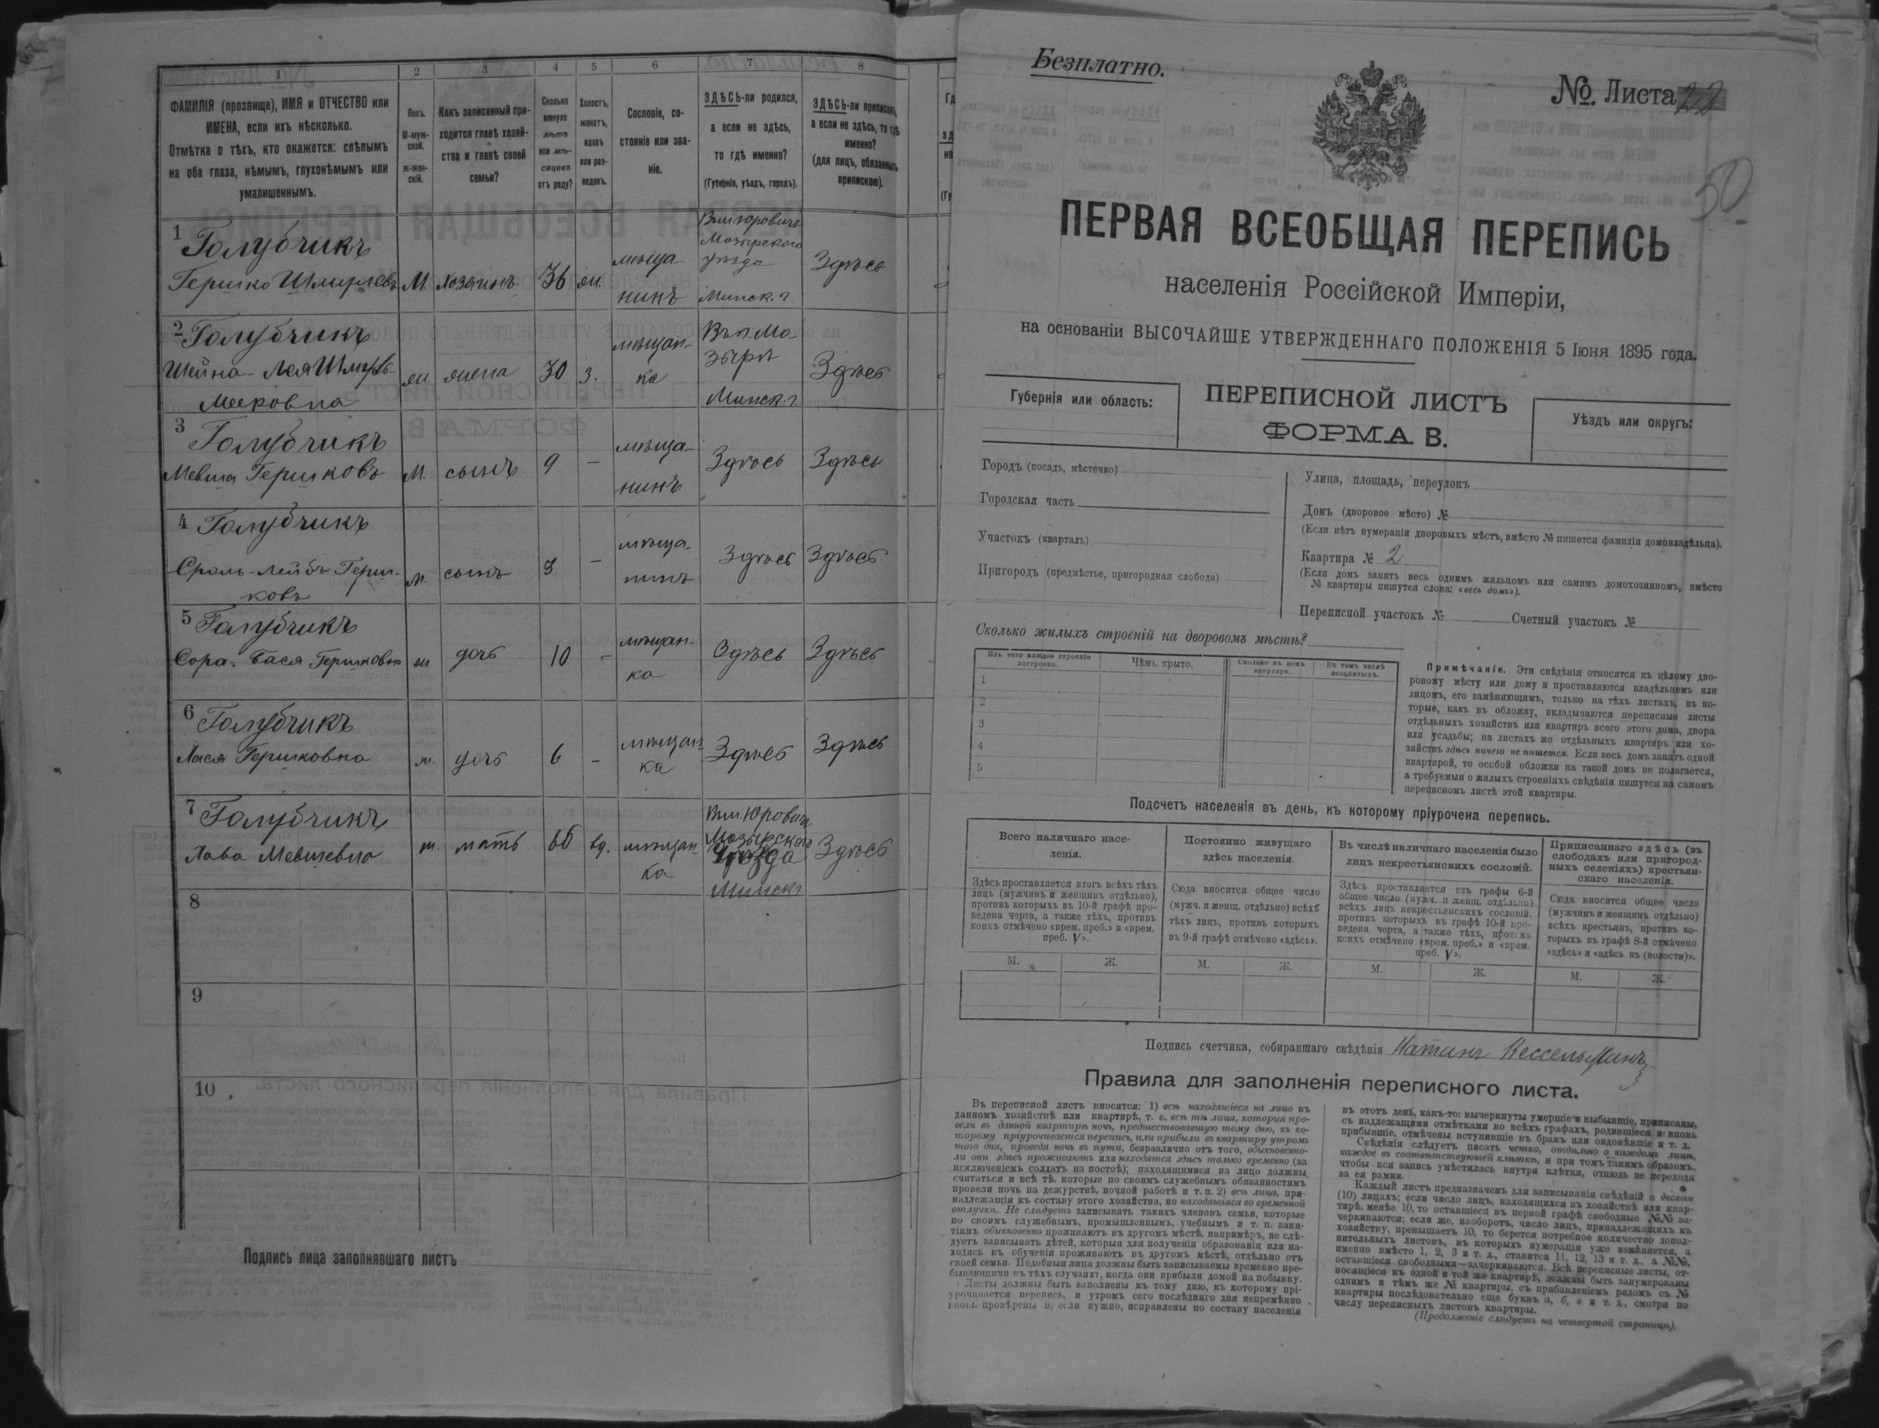 1 2 3 4 5 6 7 8
ФАМИЛІЯ (прозвище), ИМЯ и ОТЧЕСТВО или
ИМЕНА, если ихъ нѣсколько.
Отмѣтка о тѣхъ, кто окажется: слѣпымъ
на оба глаза, нѣмымъ, глухонѣмымъ или
умалишеннымъ.
Полъ.
М-муж-
ской.
Ж-жен-
скій.
Какъ записанный при-
ходится главѣ хозяй-
ства и главѣ своей
семьи?
Сколько
минуло
лѣтъ
или мѣ-
сяцевъ
отъ роду?
Холостъ,
женатъ,
вдовъ
или раз-
веденъ.
Сословіе, со-
стояніе или зва-
ніе.
ЗДѢСЬ-ли родился,
а если не здѣсь,
то гдѣ именно?
(Губернія, уѣздъ, городъ).
ЗДѢСЬ-ли приписанъ,
а если не здѣсь, то гдѣ
именно?
(для лицъ, обязанныхъ
припискою).
1 Голубчикъ
Гершко Шмарьевъ М. хозяинъ 36 ж. мѣща-
нинъ
Въ м. Юровичи
Мозырскаго
уѣзда
Минск. г. Здѣсь
2 Голубчикъ
Шейна-Лея
Мееровна ж. жена 30 з. мѣщан-
ка
Въ г. Мо-
зырѣ
Минск. г. Здѣсь
3 Голубчикъ
Мевша Гершковъ М. сынъ 9 — мѣща-
нинъ Здѣсь Здѣсь
4 Голубчикъ
Сроль-Лейбъ Герш-
ковъ м. сынъ 3 — мѣща-
нинъ Здѣсь Здѣсь
5 Голубчикъ
Сора-Бася Гершковна ж дочь 10 — мѣщан-
ка Здѣсь Здѣсь
6 Голубчикъ
Гершковна ж. дочь 6 — мѣщан-
ка Здѣсь Здѣсь
7 Голубчикъ
Хава Мевшевна ж. мать 66 вд. мѣщан-
ка
Въ м. Юровичи
Мозырскаго
уѣзда
Минск. г Здѣсь
8
9
10
Подпись лица заполнявшаго листъ
Безплатно.
№. Листа 22
50
ПЕРВАЯ ВСЕОБЩАЯ ПЕРЕПИСЬ
населенія Россійской Имперіи,
на основаніи ВЫСОЧАЙШЕ УТВЕРЖДЕННАГО ПОЛОЖЕНІЯ 5 Іюня 1895 года.
Губернія или область:
ПЕРЕПИСНОЙ ЛИСТЪ
ФОРМА В.
Уѣздъ или округъ:
Городъ (посадъ, мѣстечко)
Городская часть
Участокъ (кварталъ)
Пригородъ (предмѣстье, пригородная слобода)
Улица, площадь, переулокъ
Домъ (дворовое мѣсто) №
(Если нѣтъ нумераціи дворовыхъ мѣстъ, вмѣсто № пишется фамилія домовладѣльца).
Квартира № 2
(Если домъ занятъ весь однимъ жильцомъ или самимъ домохозяиномъ, вмѣсто
№ квартиры пишутся слова: «весь домъ»).
Переписной участокъ № Счетный участокъ №
Сколько жилыхъ строеній на дворовомъ мѣстѣ?
Изъ чего каждое строеніе
построено.
Чѣмъ крыто.
Сколько въ немъ
квартиръ.
Въ томъ числѣ
незанятыхъ.
1
2
3
4
5
Примѣчаніе. Эти свѣдѣнія относятся къ цѣлому дво-
ровому мѣсту или дому и проставляются владѣльцемъ или
лицомъ, его замѣняющимъ, только на тѣхъ листахъ, въ ко-
торые, какъ въ обложку, вкладываются переписные листы
отдѣльныхъ хозяйствъ или квартиръ всего этого дома, двора
или усадьбы; на листахъ же отдѣльныхъ квартиръ или хо-
зяйствъ здѣсь ничего не пишется. Если весь домъ занятъ одной
квартирой, то особой обложки на такой домъ не полагается,
а требуемыя о жилыхъ строеніяхъ свѣдѣнія пишутся на самомъ
переписномъ листѣ этой квартиры.
Подсчетъ населенія въ день, къ которому пріурочена перепись.
Всего наличнаго насе-
ленія.
Постоянно живущаго
здѣсь населенія.
Въ числѣ наличнаго населенія было
лицъ некрестьянскихъ сословій.
Приписаннаго здѣсь (въ
слободахъ или пригород-
ныхъ селеніяхъ) крестьян-
скаго населенія.
Здѣсь проставляется итогъ всѣхъ тѣхъ
лицъ (мужчинъ и женщинъ отдѣльно),
противъ которыхъ въ 10-й графѣ про-
ведена черта, а также тѣхъ, противъ
коихъ отмѣчено «врем. преб.» и «врем.
преб. V».
Сюда вносится общее число
(мужч. и женщ. отдѣльно) всѣхъ
тѣхъ лицъ, противъ которыхъ
въ 9-й графѣ отмѣчено «здѣсь».
Здѣсь проставляется изъ графы 6-й
общее число (мужч. и женщ. отдѣльно)
всѣхъ лицъ некрестьянскихъ сословій,
противъ которыхъ въ графѣ 10-й про-
ведена черта, а также тѣхъ, противъ
коихъ отмѣчено «врем. преб.» и «врем.
преб. V».
Сюда вносится общее число
(мужчинъ и женщинъ отдѣльно)
всѣхъ крестьянъ, противъ ко-
торыхъ въ графѣ 8-й отмѣчено
«здѣсь» и «здѣсь къ (волости)».
М. Ж. М. Ж. М. Ж. М. Ж.
Подпись счетчика, собиравшаго свѣдѣнія Натанъ Кессельманъ
Правила для заполненія переписного листа.
Въ переписной листъ вносятся: 1) всѣ находящіеся на лицо въ
данномъ хозяйствѣ или квартирѣ, т. е. всѣ тѣ лица, которыя про-
вели въ данной квартирѣ ночь, предшествовавшую тому дню, къ ко-
торому пріурочивается перепись, или прибыли въ квартиру утромъ
того дня, проведя ночь въ пути, безразлично отъ того, обыкновенно-
ли они здѣсь проживаютъ или находятся здѣсь только временно (за
исключеніемъ солдатъ на постоѣ); находящимися на лицо должны
считаться и всѣ тѣ, которые по своимъ служебнымъ обязанностямъ
провели ночь на дежурствѣ, ночной работѣ и т. п. 2) всѣ лица, при-
надлежащія къ составу этого хозяйства, но находящіяся во временной
отлучкѣ. Не слѣдуетъ записывать такихъ членовъ семьи, которые
по своимъ служебнымъ, промышленнымъ, учебнымъ и т. п. заня-
тіямъ обыкновенно проживаютъ въ другомъ мѣстѣ, напримѣръ, не слѣ-
дуетъ записывать дѣтей, которыя для полученія образованія или на-
ходясь въ обученіи проживаютъ въ другомъ мѣстѣ, отдѣльно отъ
своей семьи. Подобныя лица должны быть записываемы временно пре-
бывающими въ тѣхъ случаяхъ, когда они прибыли домой на побывку.
Листы должны быть заполнены къ тому дню, къ которому прі-
урочивается перепись, и утромъ сего послѣдняго дня непремѣнно
вновь провѣрены и, если нужно, исправлены по составу населенія
въ этотъ день, какъ-то: вычеркнуты умершіе и выбывшіе, приписаны,
съ надлежащими отмѣтками во всѣхъ графахъ, родившіеся и вновь
прибывшіе, отмѣчены вступившіе въ бракъ или овдовѣвшіе и т. д.
Свѣдѣнія слѣдуетъ писать четко, отдѣльно о каждомъ лицѣ,
каждое въ соотвѣтствующей клѣткѣ, и при томъ такимъ образомъ,
чтобы вся запись умѣстилась внутри клѣтки, отнюдь не переходя
за ея рамки.
Каждый листъ предназначенъ для записыванія свѣдѣній о десяти
(10) лицахъ; если число лицъ, находящихся въ хозяйствѣ или квар-
тирѣ, менѣе 10, то оставшіеся въ первой графѣ свободные №№ за-
черкиваются; если же, наоборотъ, число лицъ, принадлежащихъ къ
хозяйству, превышаетъ 10, то берется потребное количество допол-
нительныхъ листовъ, въ которыхъ нумерація уже измѣняется, а
именно вмѣсто 1, 2, 3 и т. д., ставится 11, 12, 13 и т. д., а №№,
оставшіеся свободными—зачеркиваются. Всѣ переписные листы, от-
носящіеся къ одной и той же квартирѣ, должны быть занумерованы
однимъ и тѣмъ же № квартиры, съ прибавленіемъ рядомъ съ №
квартиры послѣдовательно еще буквъ а, б, в и т. д., смотря по
числу переписныхъ листовъ квартиры.
(Продолженіе слѣдуетъ на четвертой страницѣ).